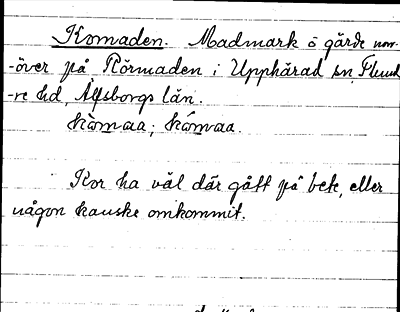 Komaden. Madmark ö gärde norr-
-över på Rörmaden i Upphärad sn, Flund
-re hd, Älfsborgs län.
kòmaa; kómaa.
Kor ha väl där gått på bete, eller
någon kanske omkommit.